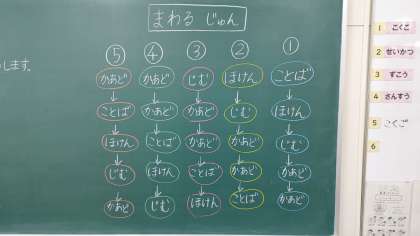 まわる じゅん
します。
⑤ ④ ③ ② ①
かあど かあど じむ ほけん ことば
ことば かあど かあど じむ ほけん
ほけん ことば かあど かあど じむ
じむ ほけん ことば かあど かあど
かあど じむ ほけん ことば かあど
1 こくご
2 せいかつ
3 ずこう
4 さんすう
5 こくご
6